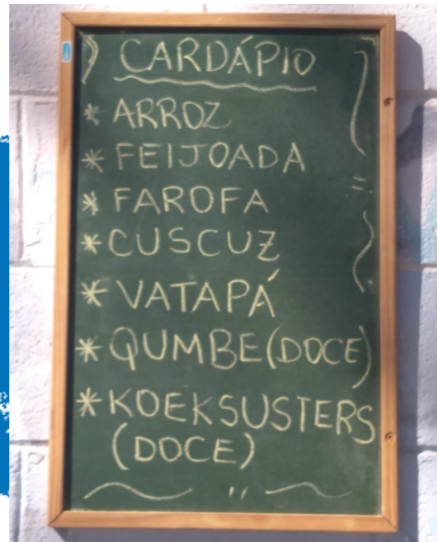 CARDÁPIO
* ARROZ
* FEIJOADA
* FAROFA
* CUSCUZ
* VATAPÁ
* QUMBE (DOCE)
* KOEKSUSTERS
(DOCE)